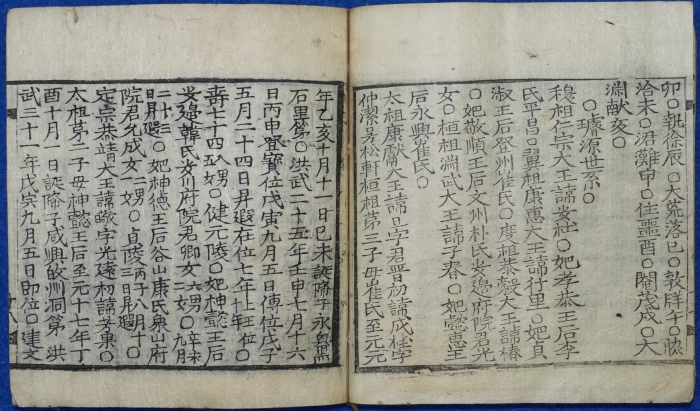 卯○執徐辰○大荒落巳○敦牂午○協
洽未○涒灘申○作噩酉○閹茂戌○大
淵献亥○
○璿源世系○
穆祖仁宗大王諱安社○妃孝恭王后李
氏平昌○翼祖康惠大王諱行里○妃貞
淑王后登州崔氏○度祖泰毅大王諱椿
○妃敬順王后文州朴氏安邊府院君光
女○桓祖淵武大王諱子春○妃懿惠王
后永興崔氏○
太祖康獻大王諱旦字君晋初諱成桂字
仲潔号松軒桓祖第二子母崔氏至元元
年乙亥十月十一日己未誕降于永興黑
石里第○洪武二十五年壬申七月十六
日丙申登寶位戊寅九月五日傳位戊子
五月二十四日昇遐在位七年上王位十年○
壽七十四八甥○健元陵○妃神懿王后
安邊韓氏安川府院君卿女六甥二女○辛未九月
二十三日昇遐○妃神德王后谷山康氏象山府
院君允成女二甥○貞陵丙子八月十三日昇遐○
定宗恭靖大王諱曔字光遠初諱芳果○
太祖第二子母神懿王后至元十七年丁
酉十月一日誕降于咸興故州洞第○洪
武三十一年戊寅九月五日即位○建文